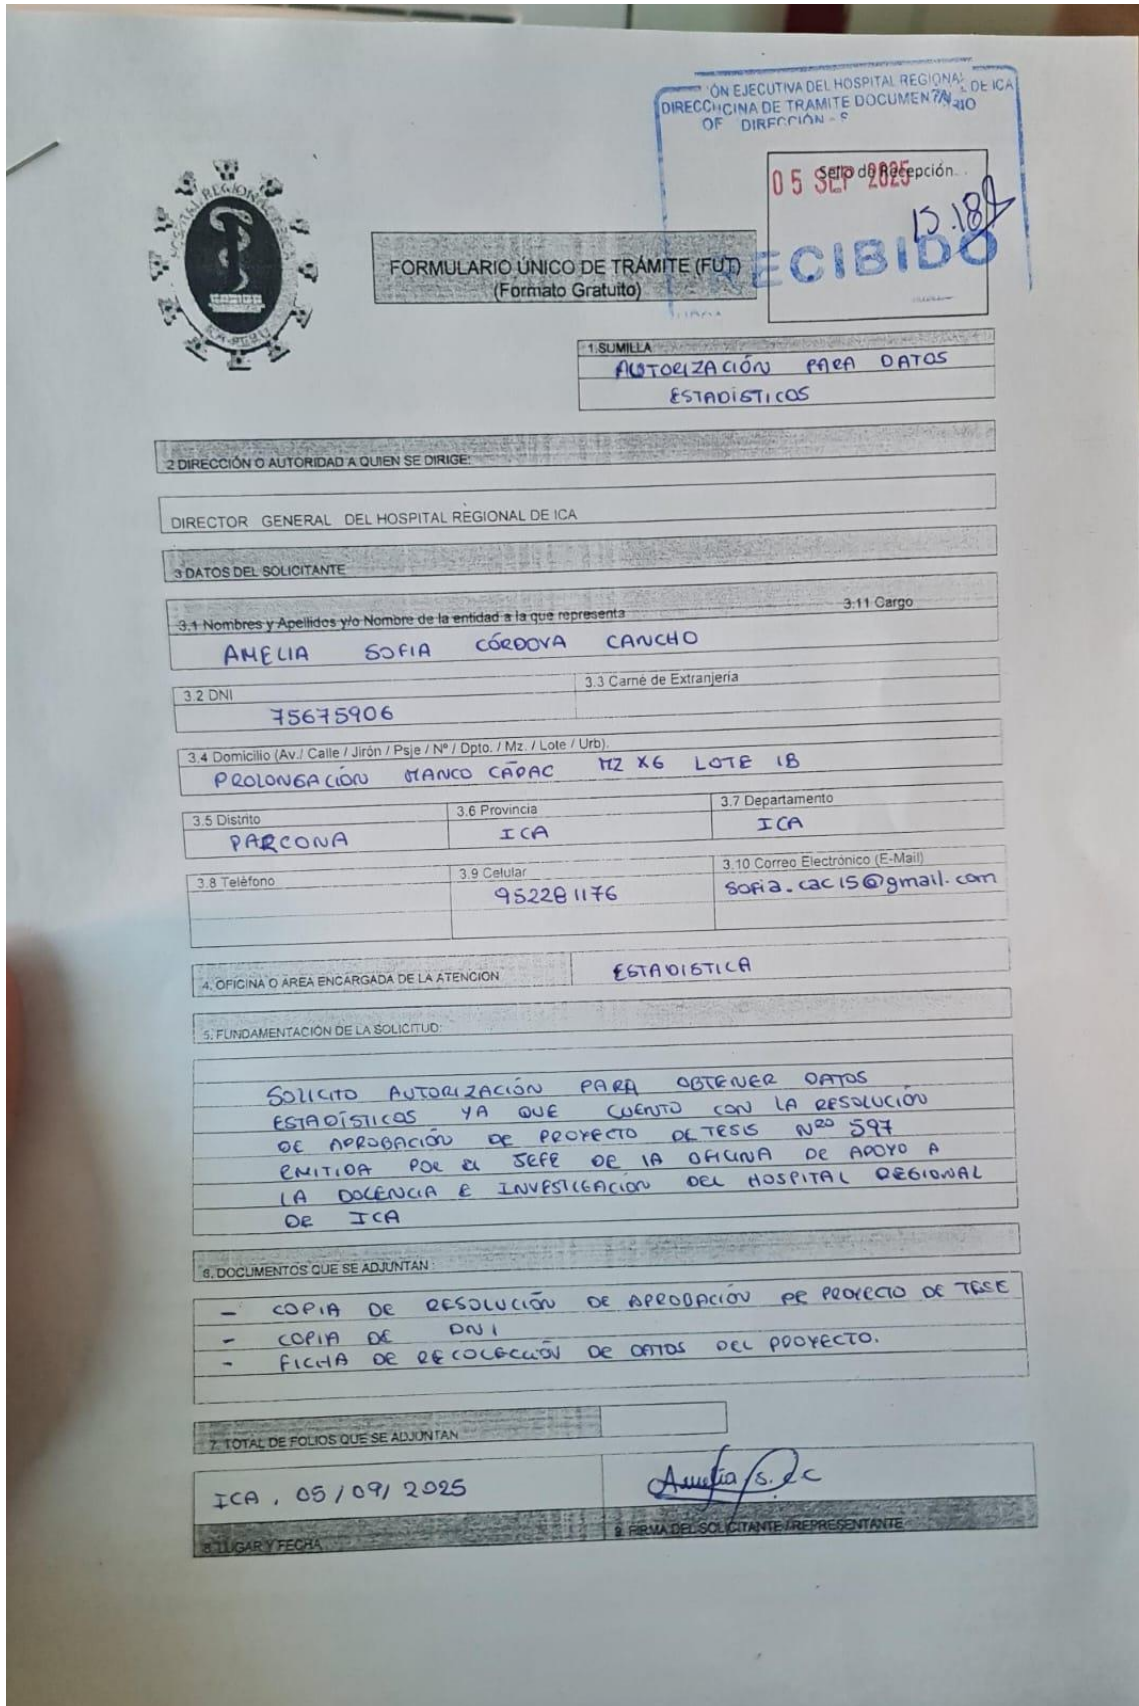 DIRECCIÓN EJECUTIVA DEL HOSPITAL REGIONAL DE ICA
OFICINA DE TRAMITE DOCUMENTARIO
DIRECCIÓN
Sello de Recepción
05 SEP 2025
13.18
RECIBIDO
HOSPITAL REGIONAL DE ICA
ICA-PERU
FORMULARIO ÚNICO DE TRÁMITE (FUT)
(Formato Gratuito)
1.SUMILLA
AUTORIZACIÓN PARA DATOS
ESTADÍSTICOS
2 DIRECCIÓN O AUTORIDAD A QUIEN SE DIRIGE:
DIRECTOR GENERAL DEL HOSPITAL REGIONAL DE ICA
3 DATOS DEL SOLICITANTE
3.1 Nombres y Apellidos y/o Nombre de la entidad a la que representa 3.11 Cargo
AMELIA SOFIA CÓRDOVA CANCHO
3.2 DNI 3.3 Carné de Extranjería
75675906
3.4 Domicilio (Av./ Calle / Jirón / Psje / Nº / Dpto. / Mz. / Lote / Urb).
PROLONGACIÓN MANCO CÁPAC MZ X6 LOTE 1B
3.5 Distrito 3.6 Provincia 3.7 Departamento
PARCONA ICA ICA
3.8 Teléfono 3.9 Celular 3.10 Correo Electrónico (E-Mail)
952281176 sofia.cac15@gmail.com
4. OFICINA O ÁREA ENCARGADA DE LA ATENCION ESTADISTICA
5. FUNDAMENTACIÓN DE LA SOLICITUD:
SOLICITO AUTORIZACIÓN PARA OBTENER DATOS
ESTADÍSTICOS YA QUE CUENTO CON LA RESOLUCIÓN
DE APROBACIÓN DE PROYECTO DE TESIS NRO 597
EMITIDA POR EL JEFE DE LA OFICINA DE APOYO A
LA DOCENCIA E INVESTIGACIÓN DEL HOSPITAL REGIONAL
DE ICA
6. DOCUMENTOS QUE SE ADJUNTAN :
- COPIA DE RESOLUCIÓN DE APROBACIÓN DE PROYECTO DE TESE
- COPIA DE DNI
- FICHA DE RECOLECCIÓN DE DATOS DEL PROYECTO.
7. TOTAL DE FOLIOS QUE SE ADJUNTAN
ICA, 05/09/2025 Amelia S.
8. LUGAR Y FECHA 9. FIRMA DEL SOLICITANTE / REPRESENTANTE